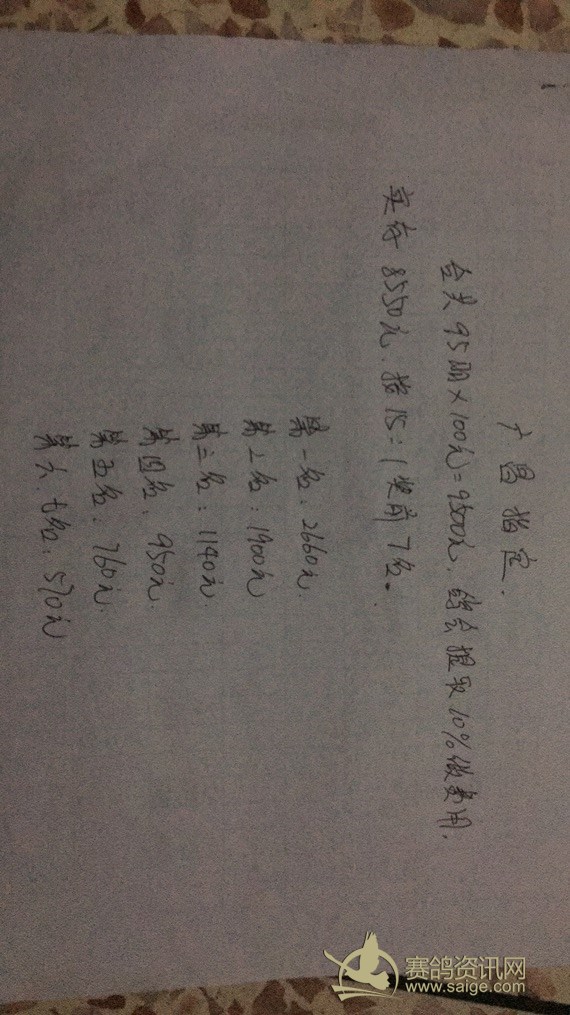 广昌指定.
合共95羽×100元=9500元. 鸽会提取10%做费用.
实存8550元. 按15:1奖前7名.
第一名: 2660元.
第二名: 1900元
第三名: 1140元.
第四名: 950元.
第五名: 760元.
第六.七名: 570元
赛鸽资讯网
www.saige.com